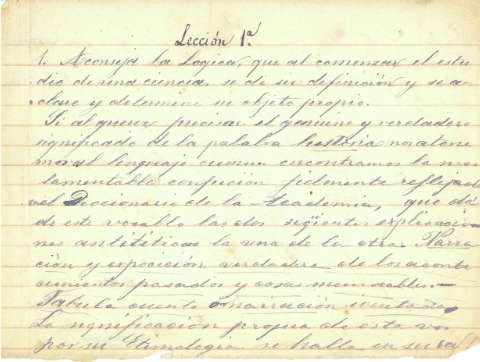 Lección 1ª.
1. Aconseja la Logica, que al comenzar el estu
dio de una ciencia, se de su definición y se a
clare y determine su objeto propio.
Si al querer precisar el genuino y verdadero
significado de la palabra historia nos atene
mos al lenguaje comun encontramos la mas
lamentable confusion fielmente reflejada
el Diccionario de la Academia, que dá
de este vocablo las dos seguientes explicacio
nes antitéticas la una de la otra Narra
ción y exposición verdadera de los aconte
cimientos pasados y cosas memorables.—
Fabula cuento o narración inventada.
La significación propia de esta vo
por su Etimologia se halla en su ra